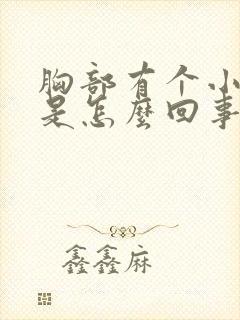 胸部有个小
是怎麼回事
鑫鑫麻